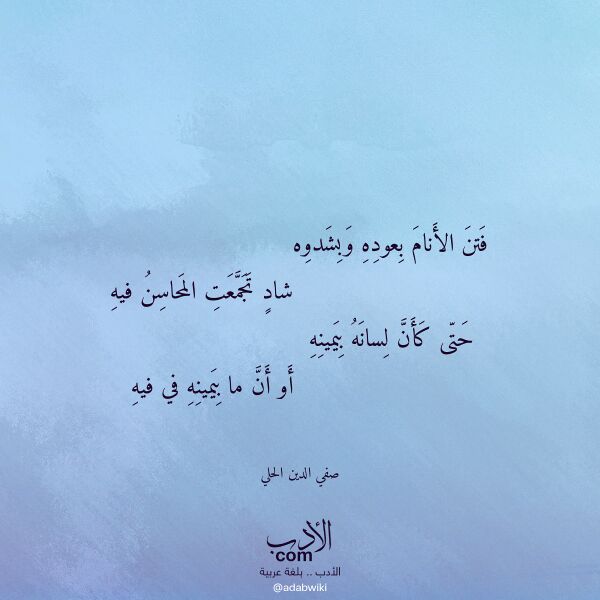 فَتنَ الأَنامَ بِعودِهِ وَبِشَدوِه
شادٍ تَجَمَّعَتِ المَحاسِنُ فيهِ
حَتّى كَأَنَّ لِسانَهُ بِيَمينِهِ
أَو أَنَّ ما بِيَمينِهِ في فيهِ
صفي الدين الحلي
الأدب
com
الأدب .. بلغة عربية
@adabwiki